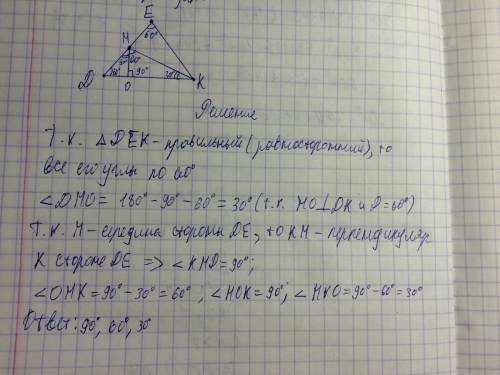 E
60°
M
30° 60°
D 60° 90° 30° K
O
Решение
Т.к. △DEK - правильный (равносторонний), то
все его углы по 60°
∠DMO = 180° - 90° - 60° = 30° (т.к. MO⊥DK и D = 60°)
Т.к. M - середина стороны DE, то KM - перпендикуляр
к стороне DE => ∠KMD = 90°;
∠OMK = 90° - 30° = 60° ; ∠MOK = 90°; ∠MKO = 90° - 60° = 30°
Ответ: 90°, 60°, 30°